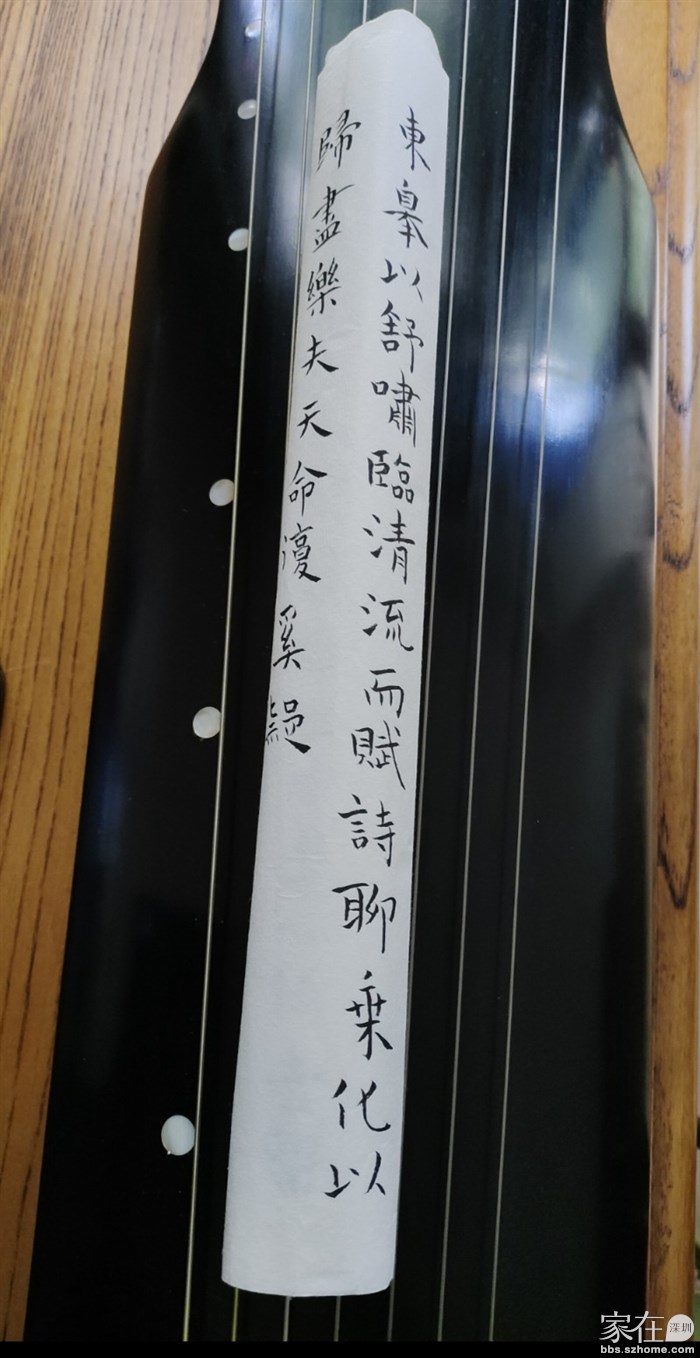 東皋以舒嘯臨清流而賦詩聊乗化以
歸盡樂夫天命復奚疑
家在深圳
bbs.szhome.com